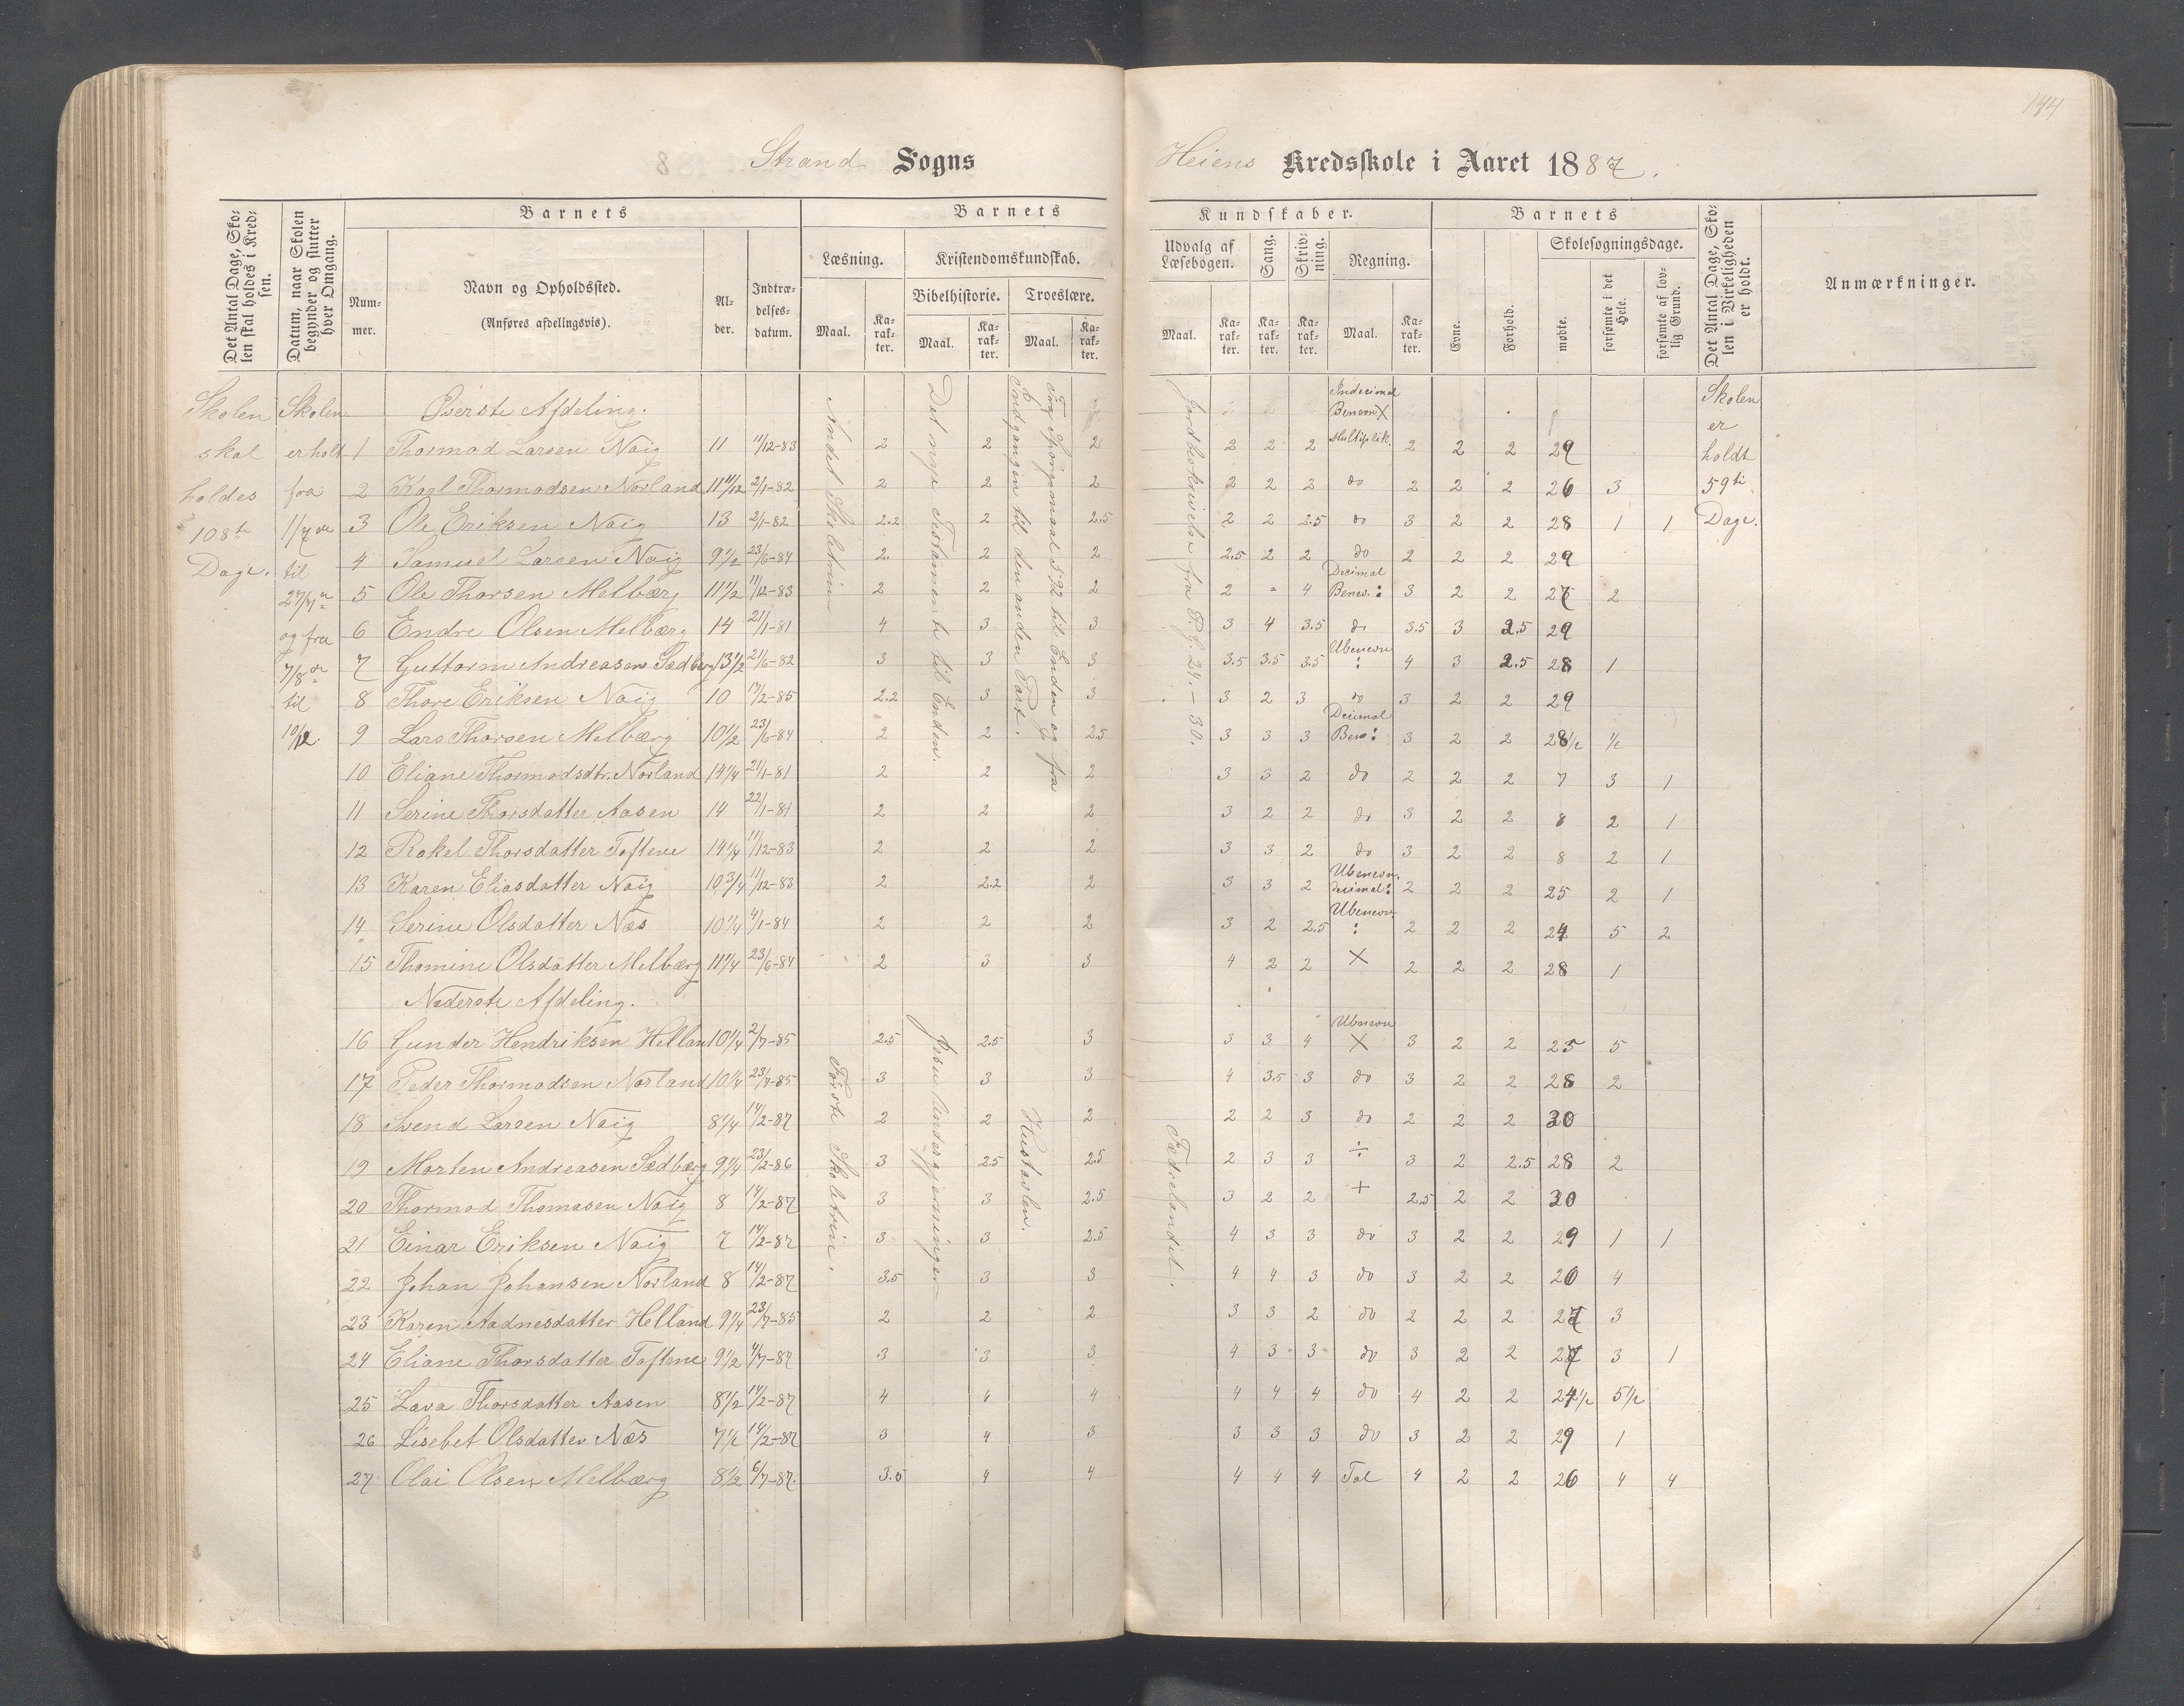 144
Strand Sogns Heiens Kredsskole i Aaret 1887.
Det Antal Dage, Skolen skal holdes i Kredsen.
Datum, naar Skolen begynder og slutter hver Omgang.
Barnets
Nummer.
Navn og Opholdssted.
(Anføres afdelingsvis).
Alder.
Indtrædelsesdatum.
Barnets
Læsning.
Maal.
Karakter.
Kristendomskundskab.
Bibelhistorie.
Maal.
Karakter.
Troeslære.
Maal.
Karakter.
Kundskaber.
Udvalg af Læsebogen.
Maal.
Karakter.
Sang.
Karakter.
Skrivning.
Karakter.
Regning.
Maal.
Karakter.
Barnets
Evne.
Forhold.
Skolesøgningsdage.
mødte.
forsømte i det Hele.
forsømte af lovlig Grund.
Det Antal Dage, Skolen i Virkeligheden er holdt.
Anmærkninger.
Skolen skal holdes 108te Dage.
Skolen er holdt fra 1/7 de til 27/7 de og fra 7/8 de til 10/12.
Andet Skoletrin
Det nye Testamente til Enden.
Tog Spörgsmaal 592 til Enden og fra
Indgangen til den anden Part.
Jordbeskrivelse fra P.g. 24.-30.
Skolen er holdt 59ti Dage.
Øverste Afdeling.
Indecimal Benevn X
1 Thormod Larsen Naig 11 11/12-83 2 2 2 2 2 2 Multiplik. 2 2 2 29
2 Karl Thormodsen Norland 11 11/12 2/1-82 2 2 2 2 2 2 do 2 2 2 26 3
3 Ole Eriksen Naig 13 2/1-82 2.2 2 2.5 2 2 2.5 do 3 2 2 28 1 1
4 Samuel Larsen Naig 9 1/2 23/6-84 2. 2 2 2.5 2 2 do 2 2 2 29
5 Ole Thorsen Melbærg 11 1/2 11/12-83 2 2 2 2 " 4 Decimal Benev. : 3 2 2 27 2
6 Endre Olsen Melbærg 14 21/1-81 4 3 3 3 4 3.5 do 3.5 3 2.5 29
7 Guttorm Andreasen Sædberg 13 1/2 21/6-82 3 3 3 3.5 3.5 3.5 Ubenevn : 4 3 2.5 28 1
8 Thore Eriksen Naig 10 17/2-85 2.2 3 3 3 2 3 do 3 2 2 29
9 Lars Thorsen Melbærg 10 1/2 23/6-84 2 2 2.5 3 3 3 Decimal Ben : 3 2 2 28 1/2 1/2
10 Eliane Thormodsdtr. Norland 14 1/4 21/1-81 2 2 2 3 3 2 do 2 2 2 7 3 1
11 Serine Thorsdatter Aasen 14 22/1-81 2 2 2 3 2 2 do 3 2 2 8 2 1
12 Rakel Thorsdatter Toftene 14 1/4 11/12-83 2 2 2 3 3 2 do 3 2 2 8 2 1
13 Karen Eliasdatter Naig 10 3/4 11/12-83 2 2.2 2 3 3 2 Ubenevn. decimal : 2 2 2 25 2 1
14 Serine Olsdatter Næs 10 1/4 4/1-84 2 2 2 3 2 2.5 Ubenevn : 2 2 2 24 5 2
15 Thomine Olsdatter Melbærg 11 1/4 23/6-84 2 3 3 4 2 2 X 2 2 2 28 1
Nederste Afdeling.
Første Skoletrin.
Jesu Undergjerninger
Hustavlen.
Fædrelandet.
16 Gunder Hendriksen Hellan 10 1/4 2/7-85 2.5 2.5 3 3 3 4 Ubnevn X 3 2 2 25 5
17 Peder Thormodsen Norland 10 1/4 23/7-85 3 3 3 4 3.5 3 do 3 2 2 28 2
18 Svend Larsen Naig 8 1/4 14/2-87 2 2 2 2 2 3 do 2 2 2 30
19 Morten Andreasen Sædbærg 9 1/4 23/2-86 3 2.5 2.5 2 3 3 ÷ 3 2 2.5 28 2
20 Thormod Thomasen Naig 8 14/2-87 3 3 2.5 3 2 2 + 2.5 2 2 30
21 Einar Eriksen Naig 7 14/2-87 3 3 2.5 4 3 3 do 3 2 2 29 1 1
22 Johan Johansen Norland 8 14/2-87 3.5 3 3 4 4 3 do 3 2 2 26 4
23 Karen Aadnesdatter Helland 9 1/4 23/7-85 2 2 2 3 3 2 do 2 2 2 27 3
24 Eliane Thorsdatter Toftene 9 1/2 4/7-87 3 3 3 4 3 3 do 3 2 2 27 3 1
25 Lava Thorsdatter Aasen 8 1/2 14/2-87 4 4 4 4 4 4 do 4 2 2 24 1/2 5 1/2
26 Lisebet Olsdatter Næs 7 1/2 14/2-87 3 4 3 3 3 3 do 3 2 2 29 1
27 Olai Olsen Melbærg 8 1/2 6/7-87. 3.5 4 4 4 4 4 Tal 4 2 2 26 4 4